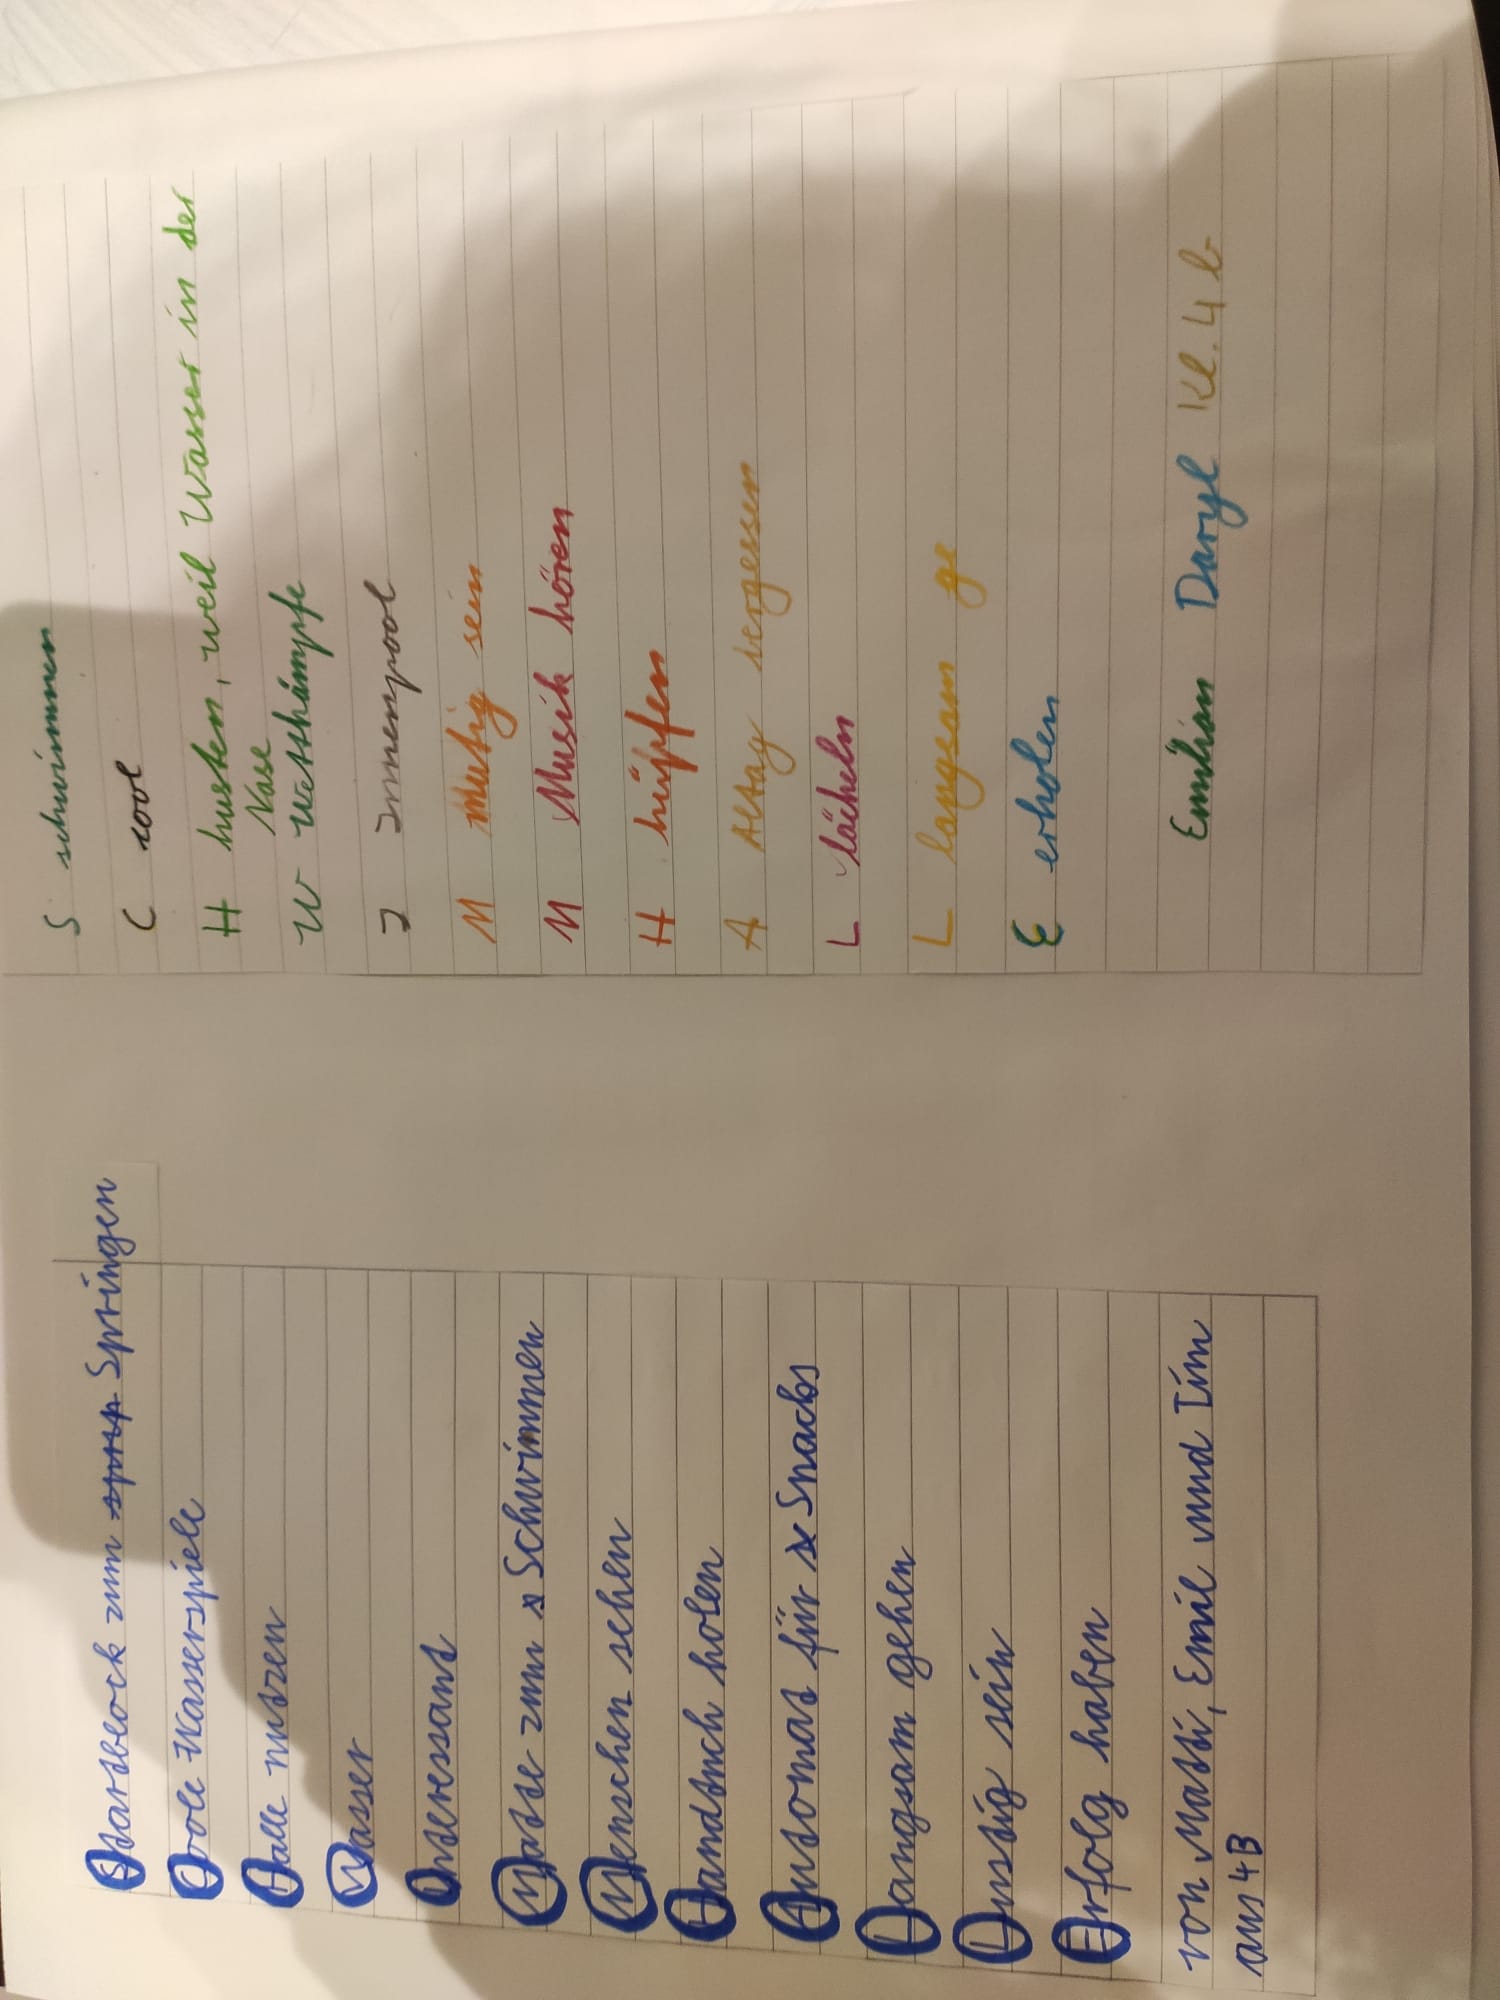 Startblock zum sprp Springen
Coole Wasserspiele
Halle nutzen
Wasser
Interessant
Matte zum s Schwimmen
Menschen sehen
Handtuch holen
Automat für s Snacks
Langsam gehen
Lustig sein
Erfolg haben
von Matti, Emil und Tim
aus 4B
S schwimmen
C cool
H husten, weil Wasser in der
Nase
W Wettkämpfe
I Innenpool
M Mutig sein
M Musik hören
H hüpfen
A Alltag vergessen
L lächeln
L langsam ge
E erholen
Daryl Kl. 4 b